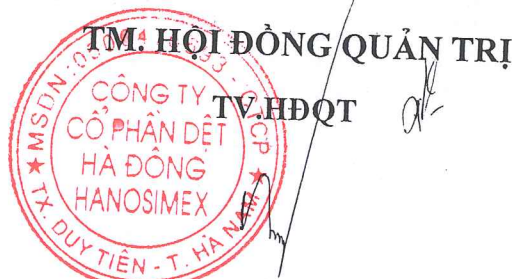 TM. HỘI ĐỒNG QUẢN TRỊ
TV.HĐQT
CÔNG TY
CỔ PHẦN DỆT
HÀ ĐÔNG
HANOSIMEX
TX. DUY TIÊN - T. HÀ NAM